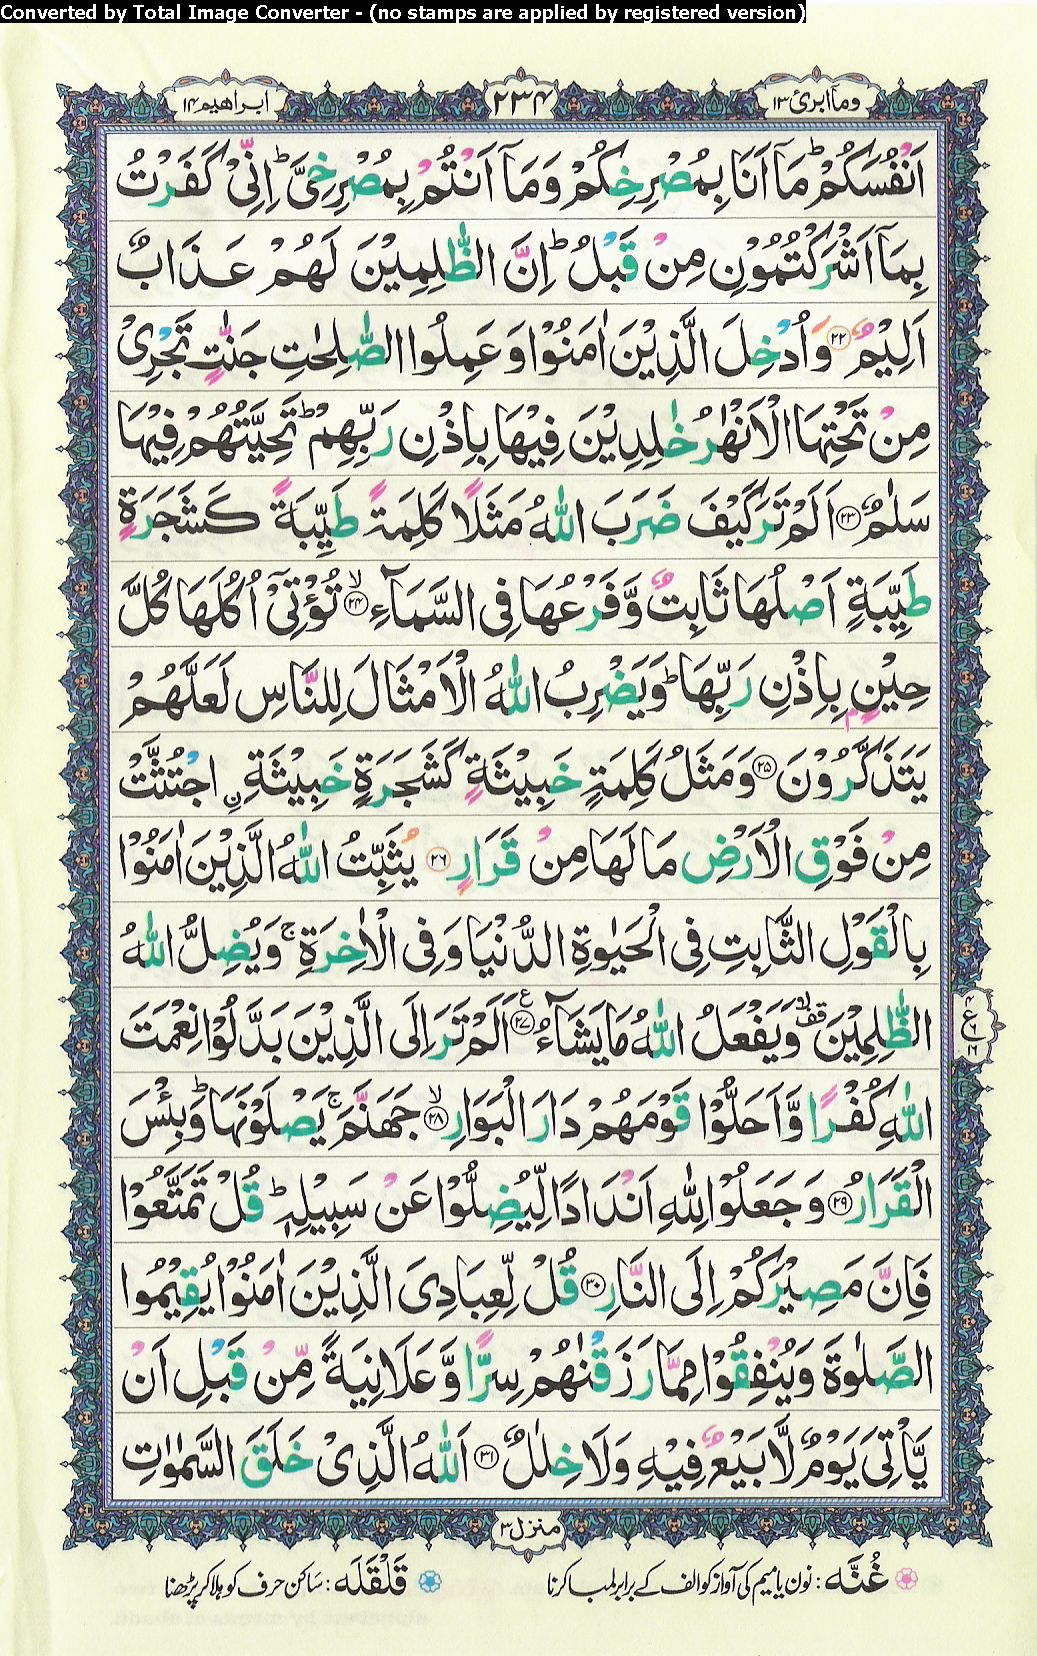 Converted by Total Image Converter - (no stamps are applied by registered version)
وماابرئ ١٣
٢٣٤
ابراهيم ١٤
اَنْفُسَكُمْ ؕ مَاۤ اَنَا بِمُصْرِخِكُمْ وَمَاۤ اَنْتُمْ بِمُصْرِخِیَّ ؕ اِنِّیْ كَفَرْتُ
بِمَاۤ اَشْرَكْتُمُوْنِ مِنْ قَبْلُ ؕ اِنَّ الظّٰلِمِیْنَ لَهُمْ عَذَابٌ
اَلِیْمٌ ﴿۲۲﴾ وَاُدْخِلَ الَّذِیْنَ اٰمَنُوْا وَعَمِلُوا الصّٰلِحٰتِ جَنّٰتٍ تَجْرِیْ
مِنْ تَحْتِهَا الْاَنْهٰرُ خٰلِدِیْنَ فِیْهَا بِاِذْنِ رَبِّهِمْ ؕ تَحِیَّتُهُمْ فِیْهَا
سَلٰمٌ ﴿۲۳﴾ اَلَمْ تَرَ كَیْفَ ضَرَبَ اللّٰهُ مَثَلًا كَلِمَةً طَیِّبَةً كَشَجَرَةٍ
طَیِّبَةٍ اَصْلُهَا ثَابِتٌ وَّفَرْعُهَا فِی السَّمَآءِ ﴿۲۴﴾ۙ تُؤْتِیْۤ اُكُلَهَا كُلَّ
حِیْنٍۭ بِاِذْنِ رَبِّهَا ؕ وَیَضْرِبُ اللّٰهُ الْاَمْثَالَ لِلنَّاسِ لَعَلَّهُمْ
یَتَذَكَّرُوْنَ ﴿۲۵﴾ وَمَثَلُ كَلِمَةٍ خَبِیْثَةٍ كَشَجَرَةٍ خَبِیْثَةِ ِ۟اجْتُثَّتْ
مِنْ فَوْقِ الْاَرْضِ مَا لَهَا مِنْ قَرَارٍ ﴿۲۶﴾ یُثَبِّتُ اللّٰهُ الَّذِیْنَ اٰمَنُوْا
بِالْقَوْلِ الثَّابِتِ فِی الْحَیٰوةِ الدُّنْیَا وَفِی الْاٰخِرَةِ ۚ وَیُضِلُّ اللّٰهُ
الظّٰلِمِیْنَ ۙ۫ وَیَفْعَلُ اللّٰهُ مَا یَشَآءُ ﴿۲۷﴾ اَلَمْ تَرَ اِلَی الَّذِیْنَ بَدَّلُوْا نِعْمَتَ
اللّٰهِ كُفْرًا وَّاَحَلُّوْا قَوْمَهُمْ دَارَ الْبَوَارِ ﴿۲۸﴾ۙ جَهَنَّمَ ۚ یَصْلَوْنَهَا ؕ وَبِئْسَ
الْقَرَارُ ﴿۲۹﴾ وَجَعَلُوْا لِلّٰهِ اَنْدَادًا لِّیُضِلُّوْا عَنْ سَبِیْلِهٖ ؕ قُلْ تَمَتَّعُوْا
فَاِنَّ مَصِیْرَكُمْ اِلَی النَّارِ ﴿۳۰﴾ قُلْ لِّعِبَادِیَ الَّذِیْنَ اٰمَنُوْا یُقِیْمُوا
الصَّلٰوةَ وَیُنْفِقُوْا مِمَّا رَزَقْنٰهُمْ سِرًّا وَّعَلَانِیَةً مِّنْ قَبْلِ اَنْ
یَّاْتِیَ یَوْمٌ لَّا بَیْعٌ فِیْهِ وَلَا خِلٰلٌ ﴿۳۱﴾ اَللّٰهُ الَّذِیْ خَلَقَ السَّمٰوٰتِ
ع
٤
٦
١٦
منزل ٣
غُنَّه : نون یا میم کی آواز کو الف کے برابر لمبا کرنا
قَلْقَلَه : ساکن حرف کو ہلا کر پڑھنا